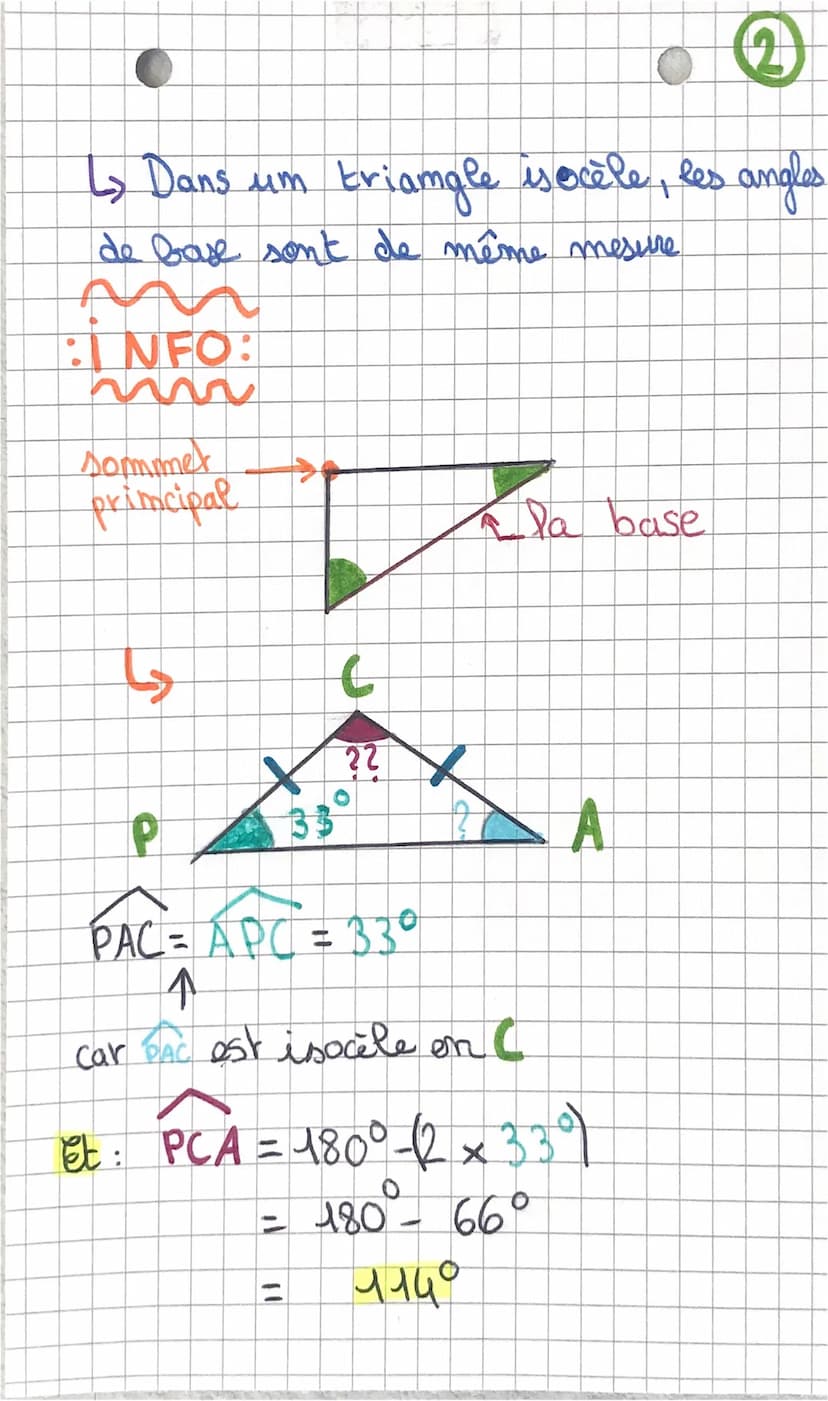 2
↳ Dans un triangle isocèle, les angles
de base sont de même mesure
:iNFO:
sommet
principal
la base
C
??
33°
?
P
A
PAC = APC = 33°
car PAC est isocèle en C
Et : PCA = 180° - (2 x 33°)
= 180° - 66°
= 114°